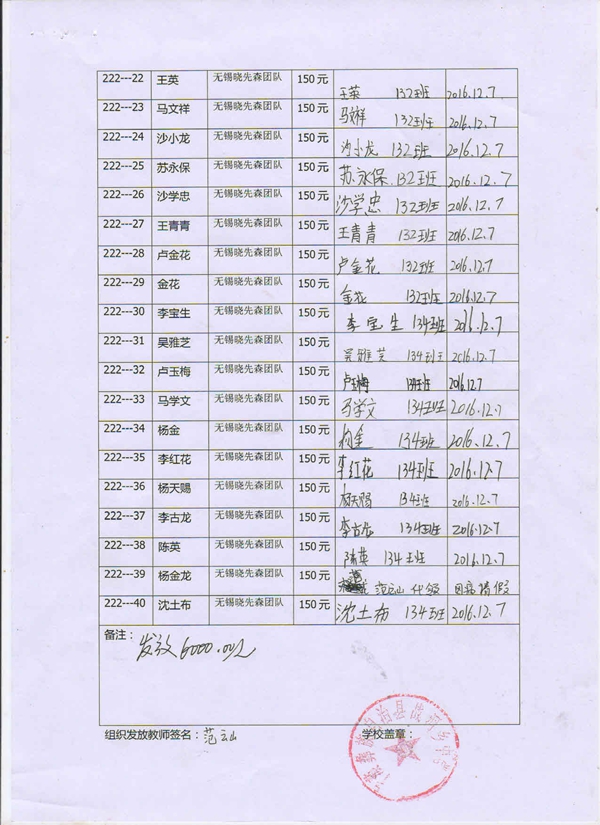 222---22 王英 无锡晓先森团队 150元 王英 132班 2016.12.7
222---23 马文祥 无锡晓先森团队 150元 马文祥 132班 2016.12.7
222---24 沙小龙 无锡晓先森团队 150元 沙小龙 132班 2016.12.7
222---25 苏永保 无锡晓先森团队 150元 苏永保 132班 2016.12.7
222---26 沙学忠 无锡晓先森团队 150元 沙学忠 132班 2016.12.7
222---27 王青青 无锡晓先森团队 150元 王青青 132班 2016.12.7
222---28 卢金花 无锡晓先森团队 150元 卢金花 132班 2016.12.7
222---29 金花 无锡晓先森团队 150元 金花 132班 2016.12.7
222---30 李宝生 无锡晓先森团队 150元 李宝生 134班 2016.12.7
222---31 吴雅芝 无锡晓先森团队 150元 吴雅芝 134班 2016.12.7
222---32 卢玉梅 无锡晓先森团队 150元 卢玉梅 134班 2016.12.7
222---33 马学文 无锡晓先森团队 150元 马学文 134班 2016.12.7
222---34 杨金 无锡晓先森团队 150元 杨金 134班 2016.12.7
222---35 李红花 无锡晓先森团队 150元 李红花 134班 2016.12.7
222---36 杨天赐 无锡晓先森团队 150元 杨天赐 134班 2016.12.7
222---37 李古龙 无锡晓先森团队 150元 李古龙 134班 2016.12.7
222---38 陈英 无锡晓先森团队 150元 陈英 134班 2016.12.7
222---39 杨金龙 无锡晓先森团队 150元 范云山 代领 因病请假
222---40 沈土布 无锡晓先森团队 150元 沈土布 134班 2016.12.7
备注：
发放6000.00元
组织发放教师签名：范云山 学校盖章：
彝族自治县